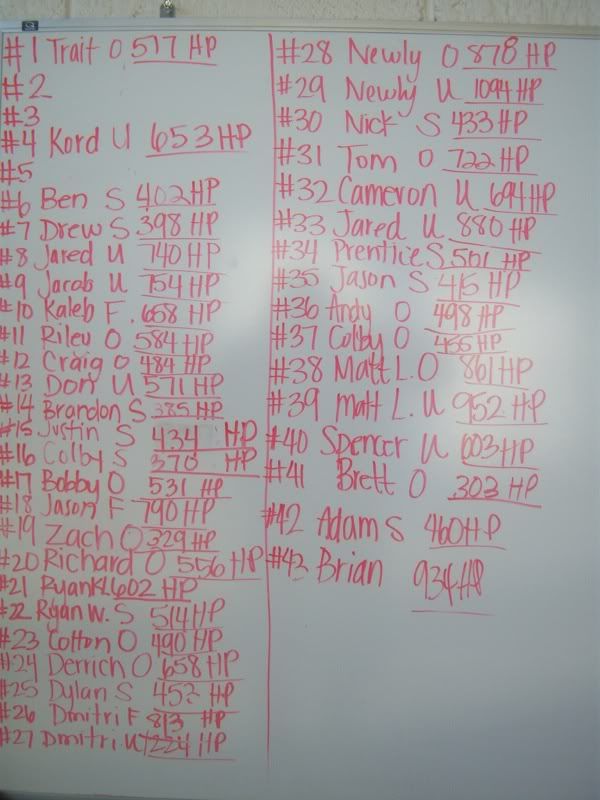 #1 Trait O 517 HP
#2
#3
#4 Kord U 653 HP
#5
#6 Ben S 402 HP
#7 Drew S 398 HP
#8 Jared U 740 HP
#9 Jacob U 754 HP
#10 Kaleb F. 658 HP
#11 Riley O 584 HP
#12 Craig O 484 HP
#13 Don U 571 HP
#14 Brandon S 385 HP
#15 Justin S 434 HP
#16 Colby S 370 HP
#17 Bobby O 531 HP
#18 Jason F 790 HP
#19 Zach O 329 HP
#20 Richard O 556 HP
#21 Ryan 602 HP
#22 Ryan W. S 514 HP
#23 Colton O 490 HP
#24 Derrich O 658 HP
#25 Dylan S 452 HP
#26 Dmitri F 813 HP
#27 Dmitri U 1224 HP
#28 Newly O 878 HP
#29 Newly U 1094 HP
#30 Nick S 433 HP
#31 Tom O 722 HP
#32 Cameron U 694 HP
#33 Jared U 880 HP
#34 Prentice S 501 HP
#35 Jason S 415 HP
#36 Andy O 498 HP
#37 Colby O 455 HP
#38 Matt L. O 861 HP
#39 Matt L. U 952 HP
#40 Spencer U 603 HP
#41 Brett O 303 HP
#42 Adam S 460 HP
#43 Brian 934 HP